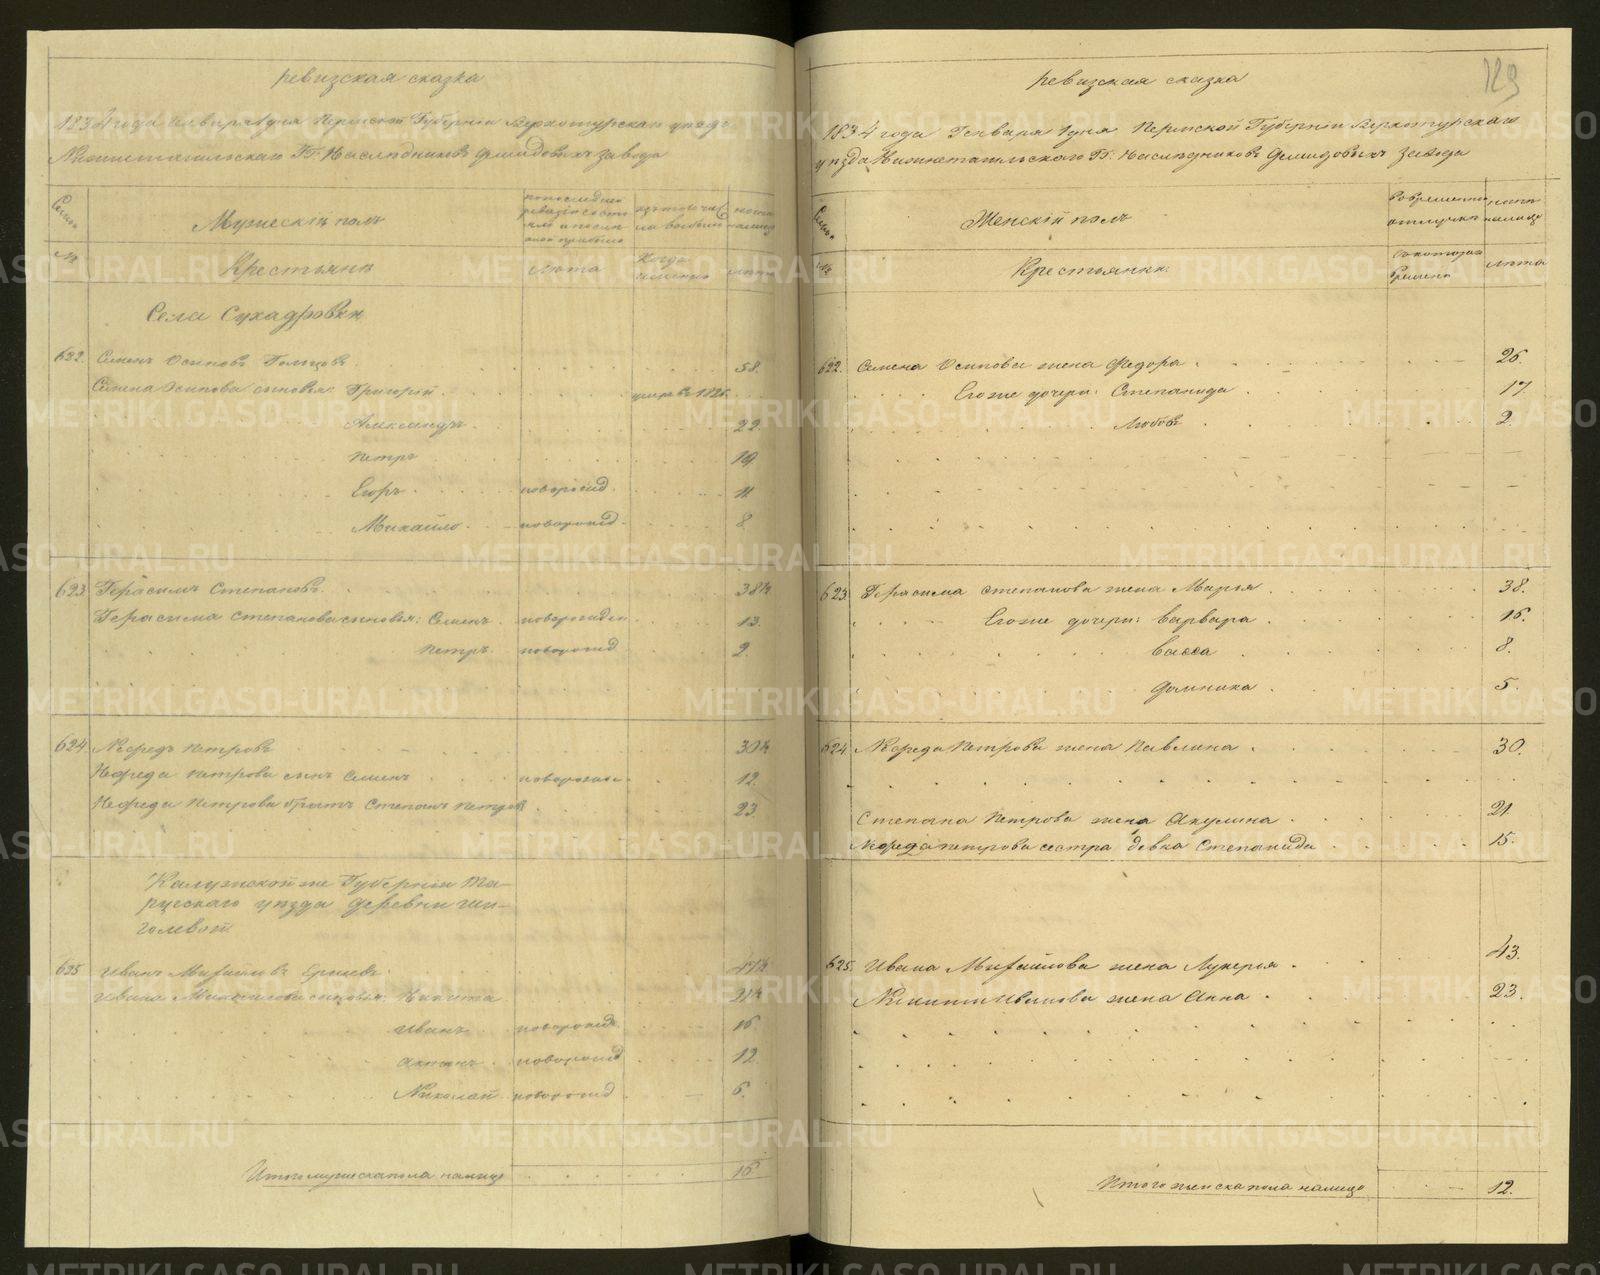 ревизская сказка
1834 года Генваря 1 дня Пермской Губернiи Верхотурскаго уѣзда
Нижнетагильскаго ГГ: Наслѣдниковъ Демидовыхъ завода
Мужескiй полъ
Крестьяне
лѣта
Когда имянно
лѣта
Села Сухадровки
622. Семенъ Осиповъ Гольцовъ 58.
Семена Осипова сыновья: Григорiй умеръ въ 1826.
Александръ 22.
Петръ 19.
Егоръ новорожд. 11.
Михайло новорожд. 8
623 Герасимъ Степановъ 38½
Герасима Степанова сыновья: Семенъ новорожден 13.
Петръ новорожд 2.
624 Нефедъ Петровъ 30½
Нефеда Петрова сынъ Семенъ новорожден. 12.
Нефеда Петрова братъ Степанъ Петровъ 23.
Калужской же Губернiи Та-
рускаго уѣзда деревни
625 Иванъ Михайловъ 47½
Ивана Михайлова сыновья: Никита 21½
Иванъ новорожд. 16
новорожд 12.
Николай новорожд 6.
Итого мужеска пола налицо 16
129
ревизская сказка
1834 года Генваря 1 дня Пермской Губернiи Верхотурскаго
уѣзда Нижнетагильскаго ГГ: Наслѣдниковъ Демидовыхъ завода
Женскiй полъ
Во временной отлучкѣ
лѣта налицо
Крестьянки:
Съ котораго времени
лѣта
622. Семена Осипова жена Федора 26.
Егоже дочери: Степанида 17
Любовь 2.
623. Герасима Степанова жена Марья 38.
Егоже дочери: Варвара 16.
Васса 8.
Домника 5.
624. Нефеда Петрова жена Павлина 30.
Степана Петрова жена Акулина 21
Нефеда Петрова сестра девка Степанида 15.
625. Ивана Михайлова жена Лукерья 43.
Никиты Иванова жена Анна 23.
Итого женска пола налицо 12.
METRIKI.GASO-URAL.RU